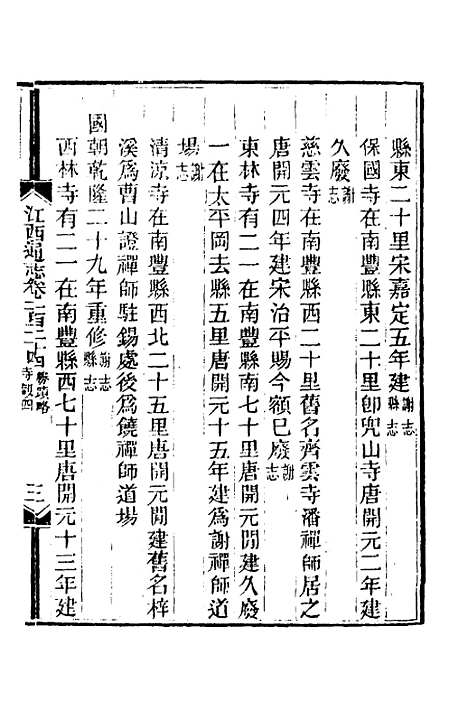 縣東二十里宋嘉定五年建謝志縣志
保國寺在南豐縣東二十里卽兜山寺唐開元二年建
久廢謝志
慈雲寺在南豐縣西二十里舊名齊雲寺潘禪師居之
唐開元四年建宋治平賜今額已廢謝志
東林寺有二一在南豐縣南七十里唐開元閒建久廢
一在太平岡去縣五里唐開元十五年建爲謝禪師道
場謝志
清涼寺在南豐縣西北二十五里唐開元閒建舊名梓
溪爲曹山證禪師駐錫處後爲饒禪師道場
國朝乾隆二十九年重修謝志縣志
西林寺有二一在南豐縣西七十里唐開元十三年建
江西通志卷一百二十四 勝蹟略 寺觀四 三